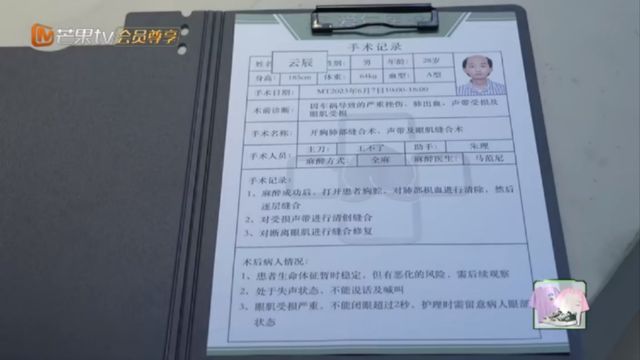 芒果tv会员尊享
手术记录
姓名 云辰 性别: 男 年龄: 28岁
身高: 185cm 体重: 64kg 血型: A型
手术日期: MT2023年6月7日10:00-16:00
术前诊断: 因车祸导致的严重挫伤、肺出血，声带受损及
眼肌受损
手术名称: 开胸肺部缝合术、声带及眼肌缝合术
手术人员: 主刀: 王不了 助手: 朱理
麻醉方式: 全麻 麻醉医生: 马范尼
手术记录:
1、麻醉成功后，打开患者胸腔，对肺部积血进行清除，然后
逐层缝合
2、对受损声带进行清创缝合
3、对断离眼肌进行缝合修复
术后病人情况:
1、患者生命体征暂时稳定，但有恶化的风险，需后续观察
2、处于失声状态，不能说话及喊叫
3、眼肌受损严重，不能闭眼超过2秒，护理时需留意病人眼部
状态